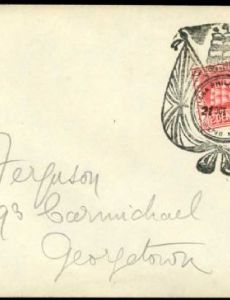 Ferguson
93 Carmichael
Georgetown